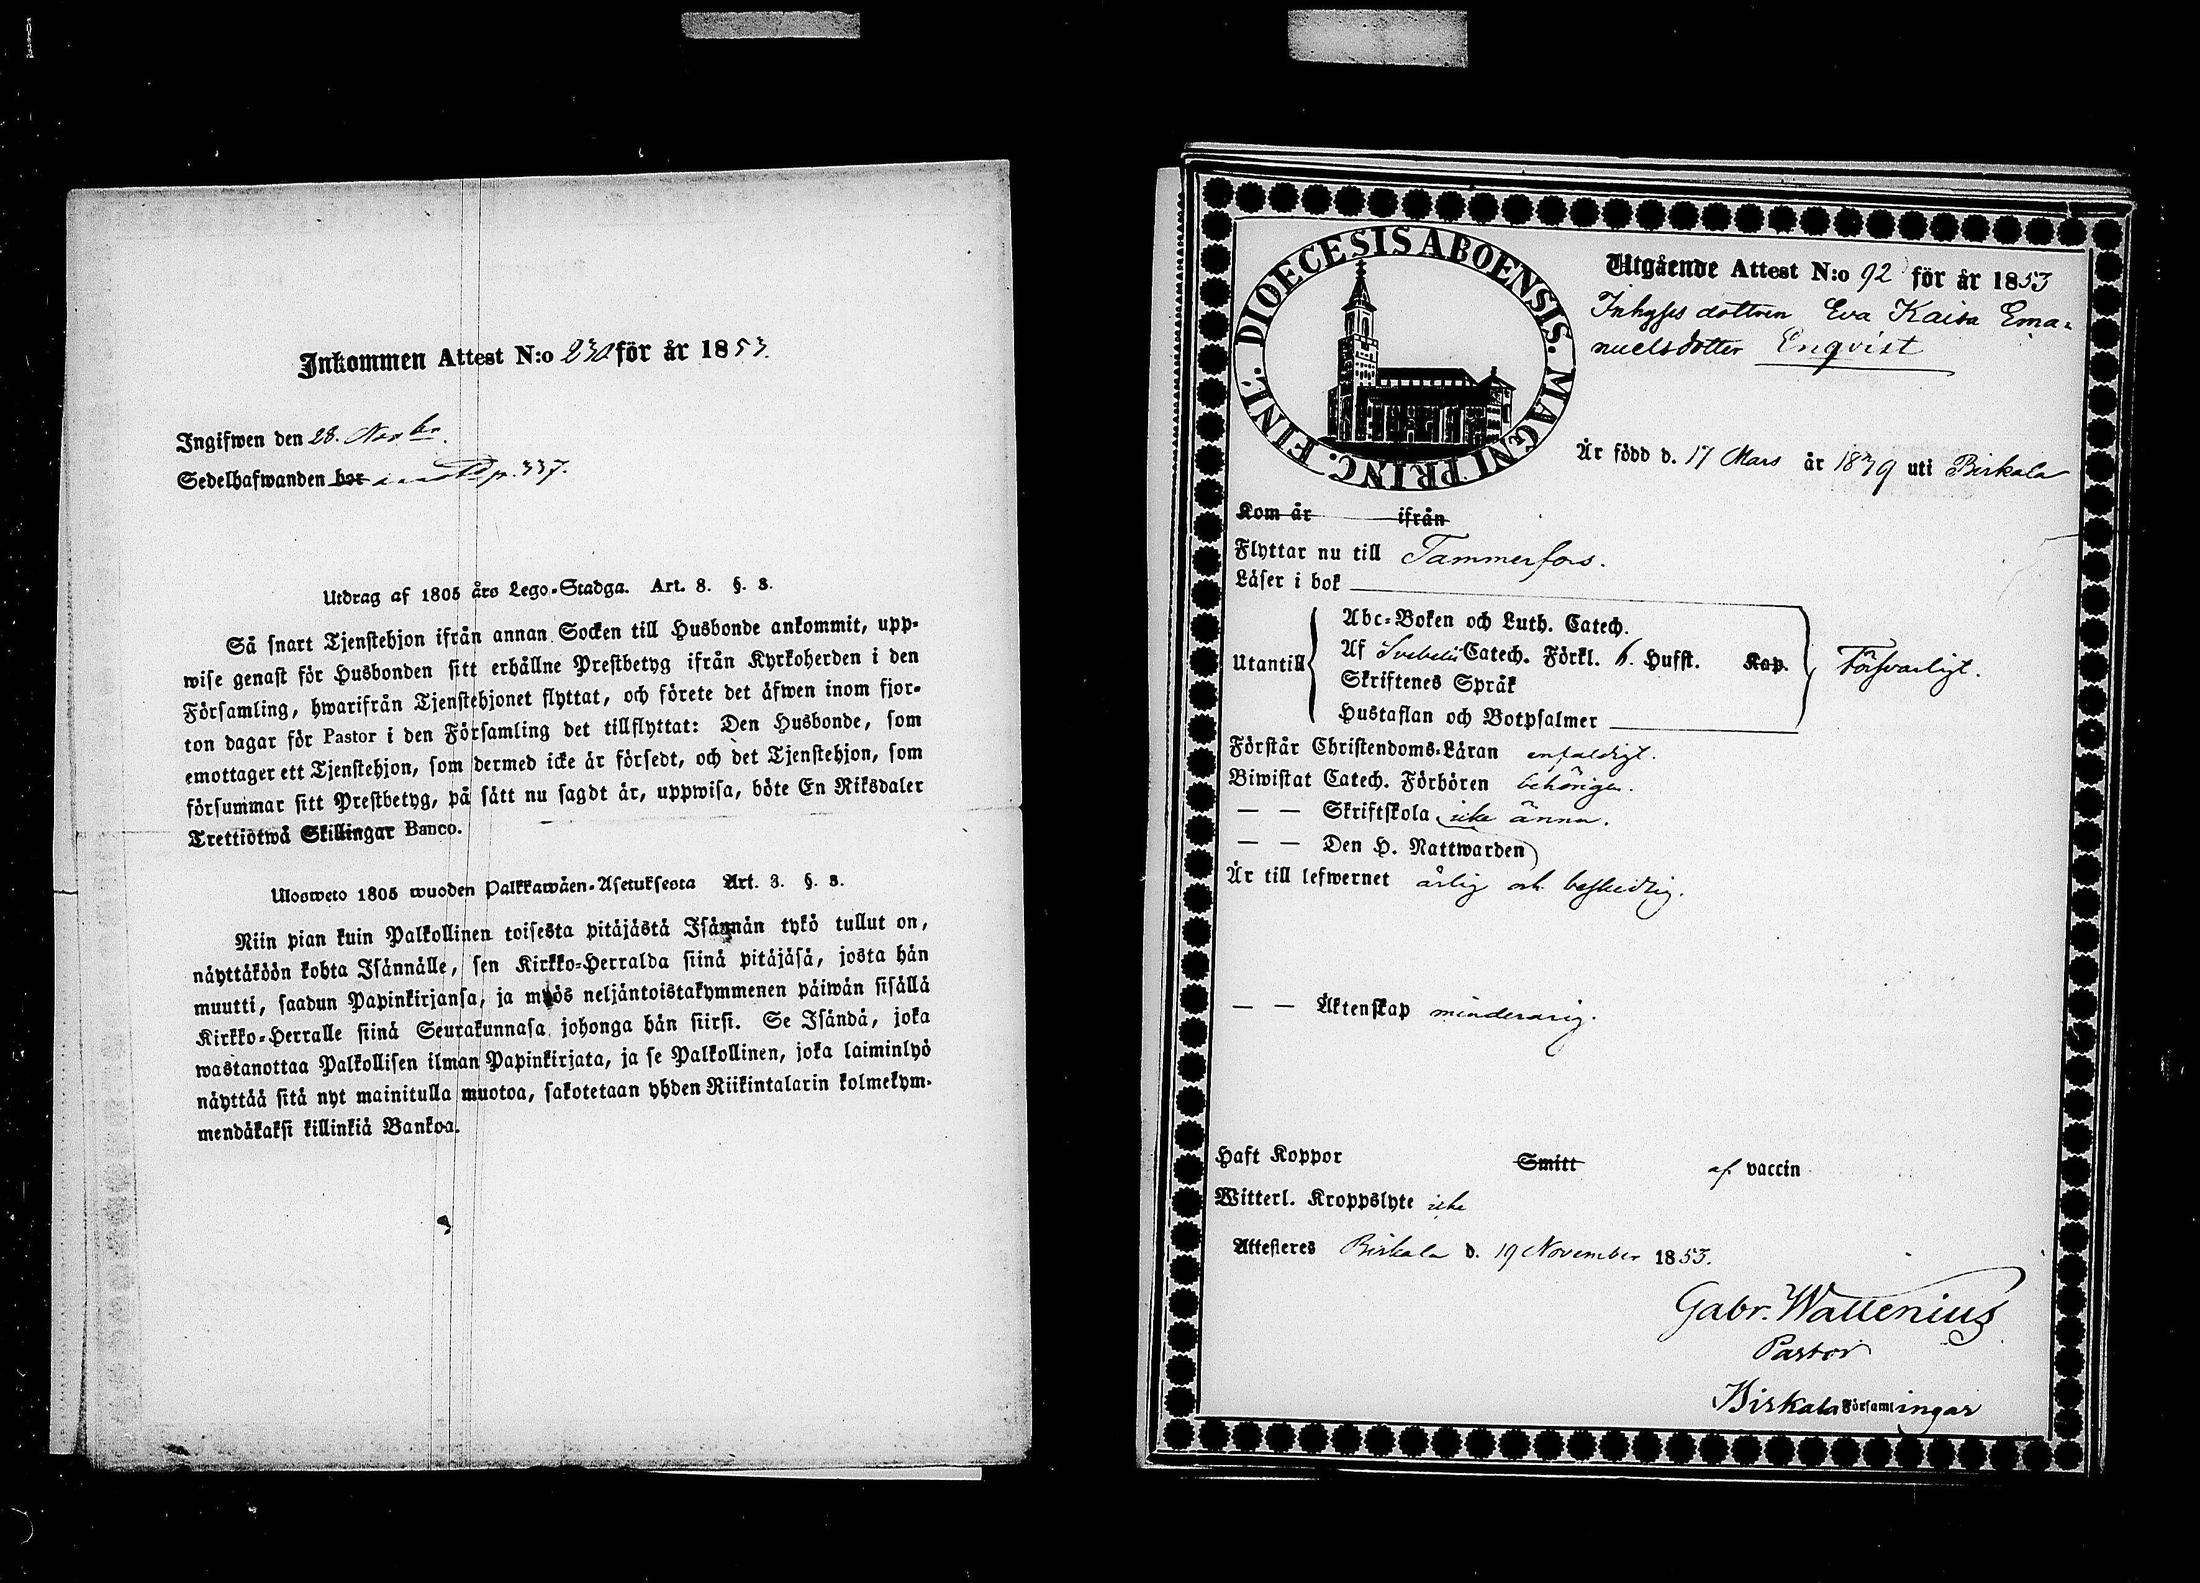 Inkommen Attest N:o 230 för år 1853.
Ingifwen den 28. Novbr.
Sedelhafwanden bor p. 337.
Utdrag af 1805 års Lego-Stadga. Art. 8. §. 3.
Så snart Tjenstehjon ifrån annan Socken till Husbonde ankommit, upp-
wise genast för Husbonden sitt erhållne Prestbetyg ifrån Kyrkoherden i den
Församling, hwarifrån Tjenstehjonet flyttat, och förete det äfwen inom fjor-
ton dagar för Pastor i den Församling det tillflyttat: Den Husbonde, som
emottager ett Tjenstehjon, som dermed icke är försedt, och det Tjenstehjon, som
försummar sitt Prestbetyg, på sätt nu sagdt är, uppwisa, böte En Riksdaler
Trettiotwå Skillingar Banco.
Ulosweto 1805 wuoden Palkkawäen-Asetuksesta Art. 3. §. 3.
Niin pian kuin Palkollinen toisesta pitäjästä Isännän tykö tullut on,
näyttäköön kohta Isännälle, sen Kirkko-Herralda siinä pitäjäsä, josta hän
muutti, saadun Papinkirjansa, ja myös neljäntoistakymmenen päiwän sisällä
Kirkko-Herralle siinä Seurakunnasa johonga hän siirsi. Se Isändä, joka
wastanottaa Palkollisen ilman Papinkirjata, ja se Palkollinen, joka laiminlyö
näyttää sitä nyt mainitulla muotoa, sakotetaan yhden Riikintalarin kolmekym-
mendäkaksi killinkiä Bankoa.
DIOECESIS ABOENSIS. MAGNI PRINC. FINL.
Utgående Attest N:o 92 för år 1853
Inhyses dottren Eva Kaisa Ema-
nuelsdotter Enqvist
Är född d. 17 Mars år 1839 uti Birkala
Kom år ifrån
Flyttar nu till Tammerfors.
Läser i bok
Abc-Boken och Luth. Catech.
Utantill Af Svebelii Catech. Förkl. 6. Hufst. Kap. Försvarligt.
Skriftenes Språk
Hustaflan och Botpsalmer
Förstår Christendoms-Läran enfaldigt.
Biwistat Catech. Förhören behörigen.
— — Skriftskola icke ännu.
— — Den H. Nattwarden
Är till lefwernet ärlig och beskedlig.
— — Äktenskap minderårig.
Haft Koppor Smitt af vaccin
Witterl. Kroppslyte icke
Attesteres Birkala d. 19 November 1853.
Gabr. Wallenius
Pastor
Birkala Församlingar